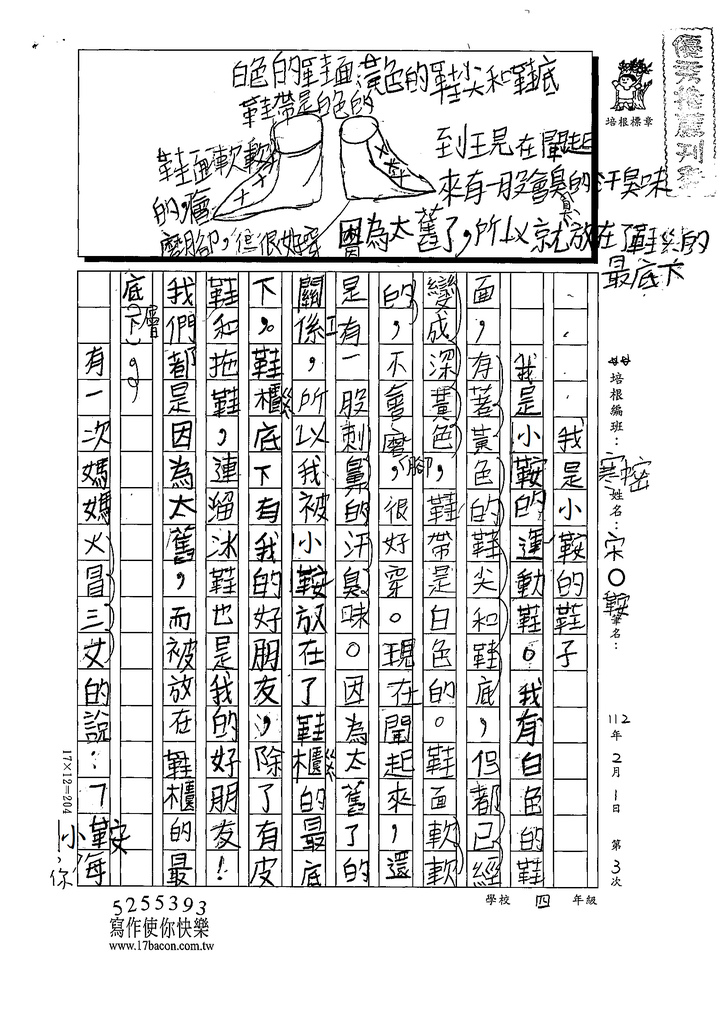 優秀推薦刊登
培根標章
白色的鞋面黃色的鞋尖和鞋底
鞋帶是白色的
鞋面軟軟的,會磨腳,但很好穿
到現在聞起來有一股會臭的汗臭味
因為太舊了,所以就放在了鞋櫃的最底下
培根編班:寒密
姓名:宋○鞍
筆名:
112年2月1日 第3次
我是小鞍的鞋子
我是小鞍的運動鞋。我有白色的鞋
面,有著黃色的鞋尖和鞋底,但都已經
變成深黃色,鞋帶是白色的。鞋面軟軟
的,不會磨腳,很好穿。現在聞起來,還
是有一股刺鼻的汗臭味。因為太舊了的
關係,所以我被小鞍放在了鞋櫃的最底
下。鞋櫃底下有我的好朋友,除了有皮
鞋和拖鞋,連溜冰鞋也是我的好朋友!
我們都是因為太舊,而被放在鞋櫃的最
底下層。
有一次媽媽火冒三丈的說:「小鞍,你每
17×12=204
學校 四 年級
5255393
寫作使你快樂
www.17bacon.com.tw